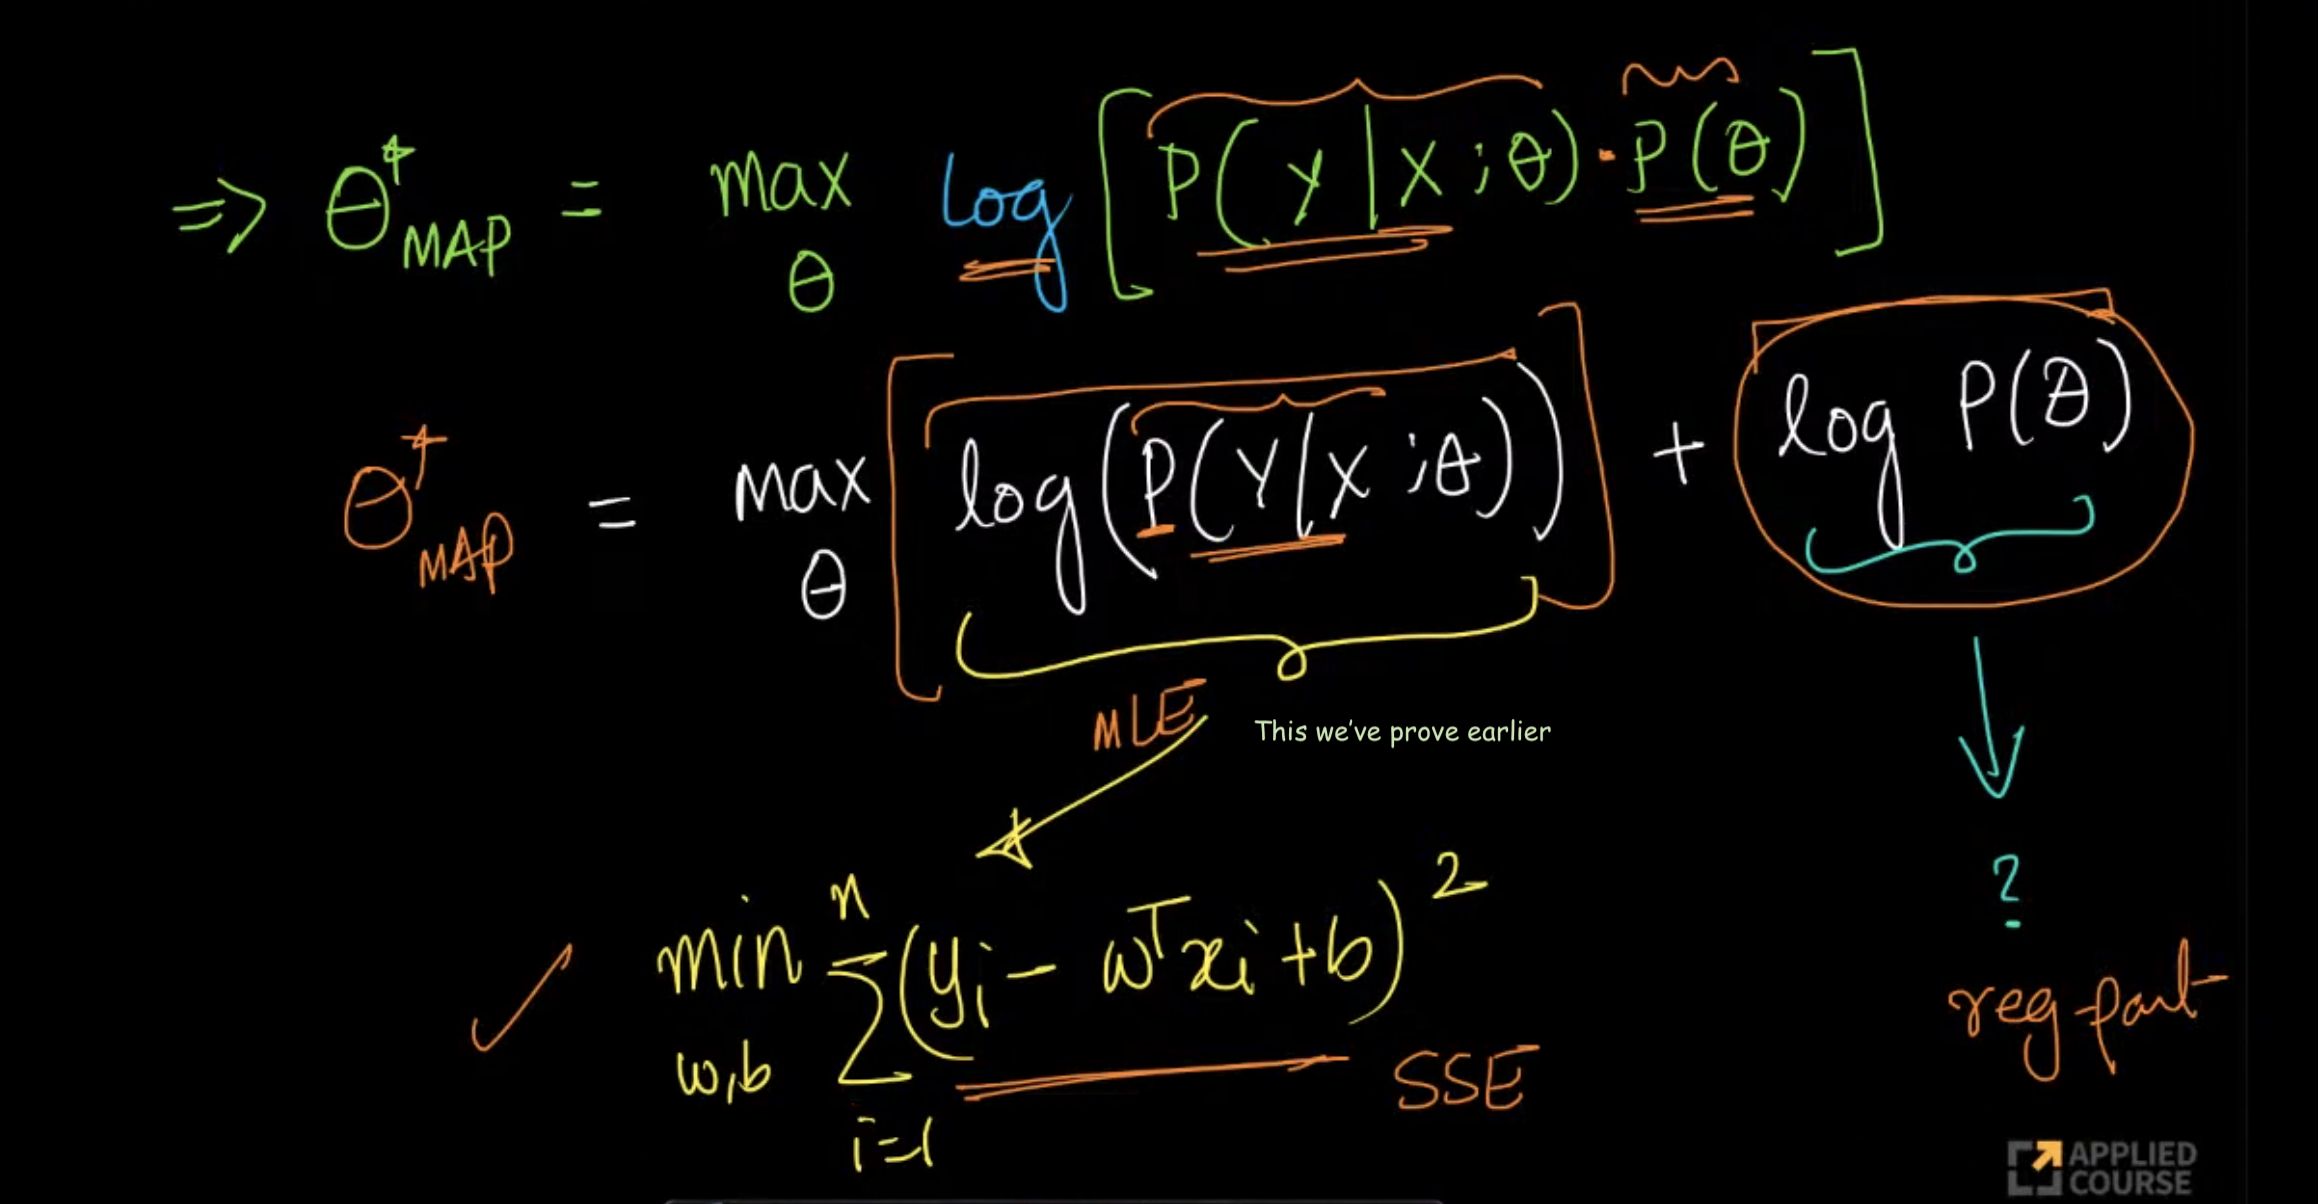 ⇒ θ*MAP = max θ log [P(Y|X;θ)·P(θ)]
θ*MAP = max θ [log(P(Y|X;θ))] + log P(θ)
MLE
This we've prove earlier
?
min w,b n Σ i=1 (yi - wᵀxi+b)²
SSE
reg part
APPLIED
COURSE